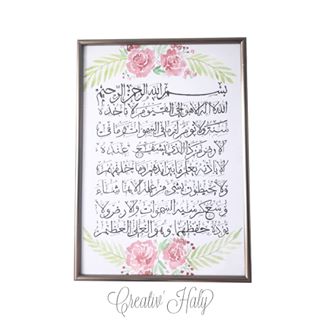 بسم الله الرحمن الرحيم
الله لا إله إلا هو الحي القيوم لا تأخذه
سنة ولا نوم له ما في السموات وما في
الأرض من ذا الذي يشفع عنده
إلا بإذنه يعلم ما بين أيديهم وما خلفهم
ولا يحيطون بشيء من علمه إلا بما شاء
وسع كرسيه السموات والأرض ولا
يؤده حفظهما وهو العلي العظيم
Creativ' Haly